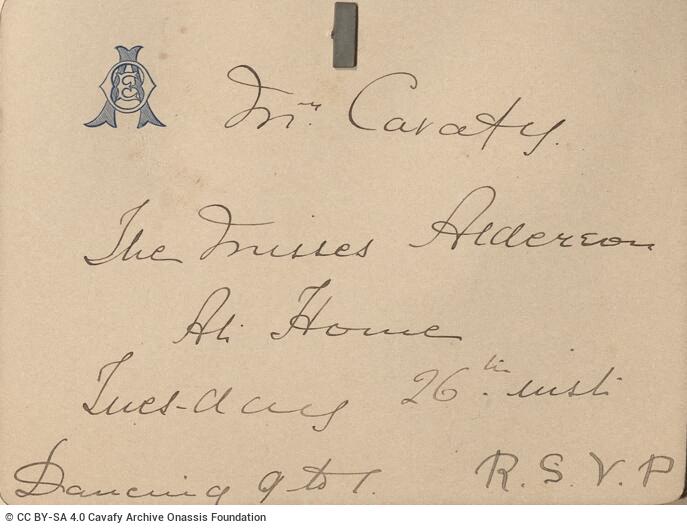 Mr. Cavafy.
The Misses Alderson
At Home
Tuesday 26th. inst
Dancing 9 to 1.
R. S. V. P
© CC BY-SA 4.0 Cavafy Archive Onassis Foundation